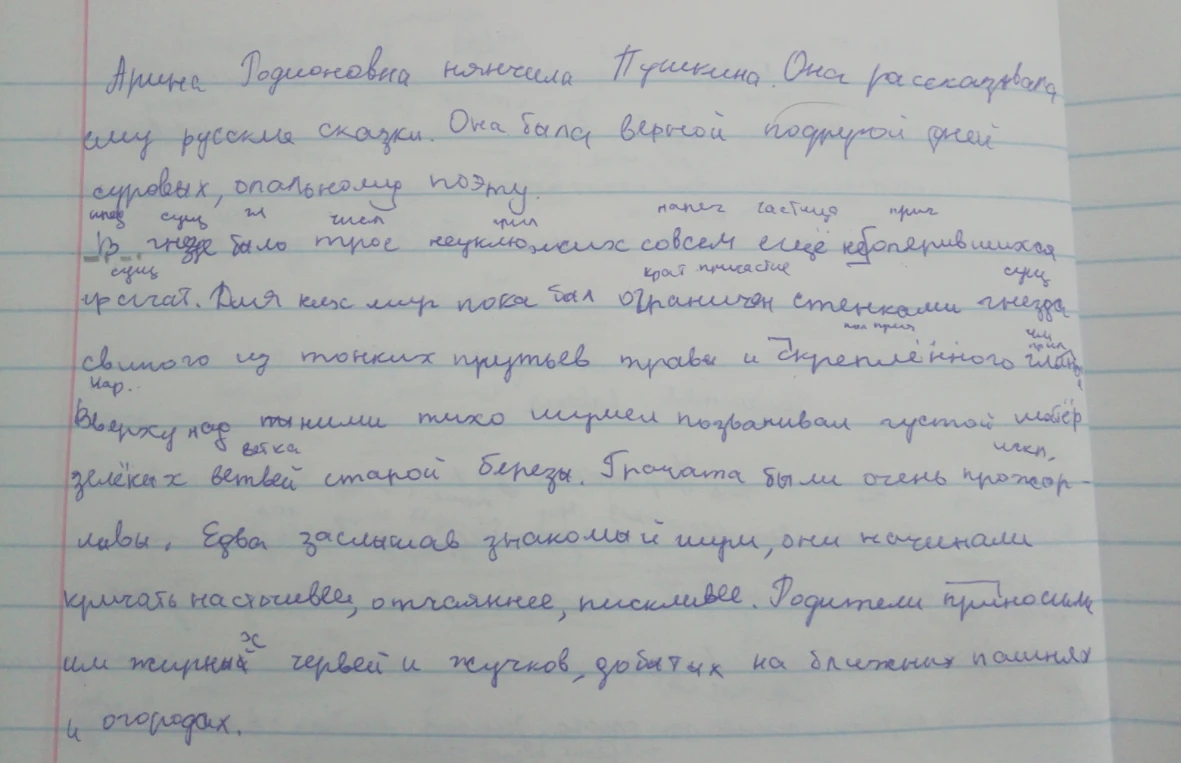 Арина Родионовна нянчила Пушкина. Она рассказывала
ему русские сказки. Она была верной подругой дней
суровых, опальному поэту.
сущ гл числ прил нареч частица прич
В гнезде было трое неуклюжих совсем ещё неоперившихся
сущ крат причастие сущ
грачат. Для них мир пока был ограничен стенками гнезда
пол прич
свитого из тонких прутьев травы и скреплённого
нар.
Вверху над ними тихо шумел позванивал густой шатёр
ветка искл.
зелёных ветвей старой березы. Грачата были очень прожор-
ливы. Едва заслышав знакомый шум, они начинали
кричать настойчивее, отчаяннее, пискливее. Родители приносили
х
им жирный червей и жучков, добытых на ближних пашнях
и огородах.